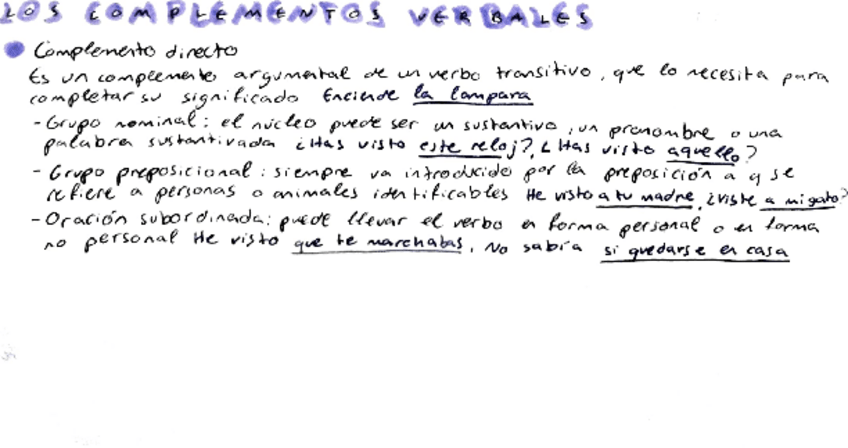 LOS COMPLEMENTOS VERBALES
Complemento directo
Es un complemento argumental de un verbo transitivo, que lo necesita para
completar su significado Enciende la lampara
- Grupo nominal: el núcleo puede ser un sustantivo, un pronombre o una
palabra sustantivada ¿Has visto este reloj?, ¿Has visto aquello?
- Grupo preposicional: siempre va introducido por la preposición a y se
refiere a personas o animales identificables He visto a tu madre, ¿viste a mi gato?
- Oración subordinada: puede llevar el verbo en forma personal o en forma
no personal He visto que te marchabas, No sabía si quedarse en casa